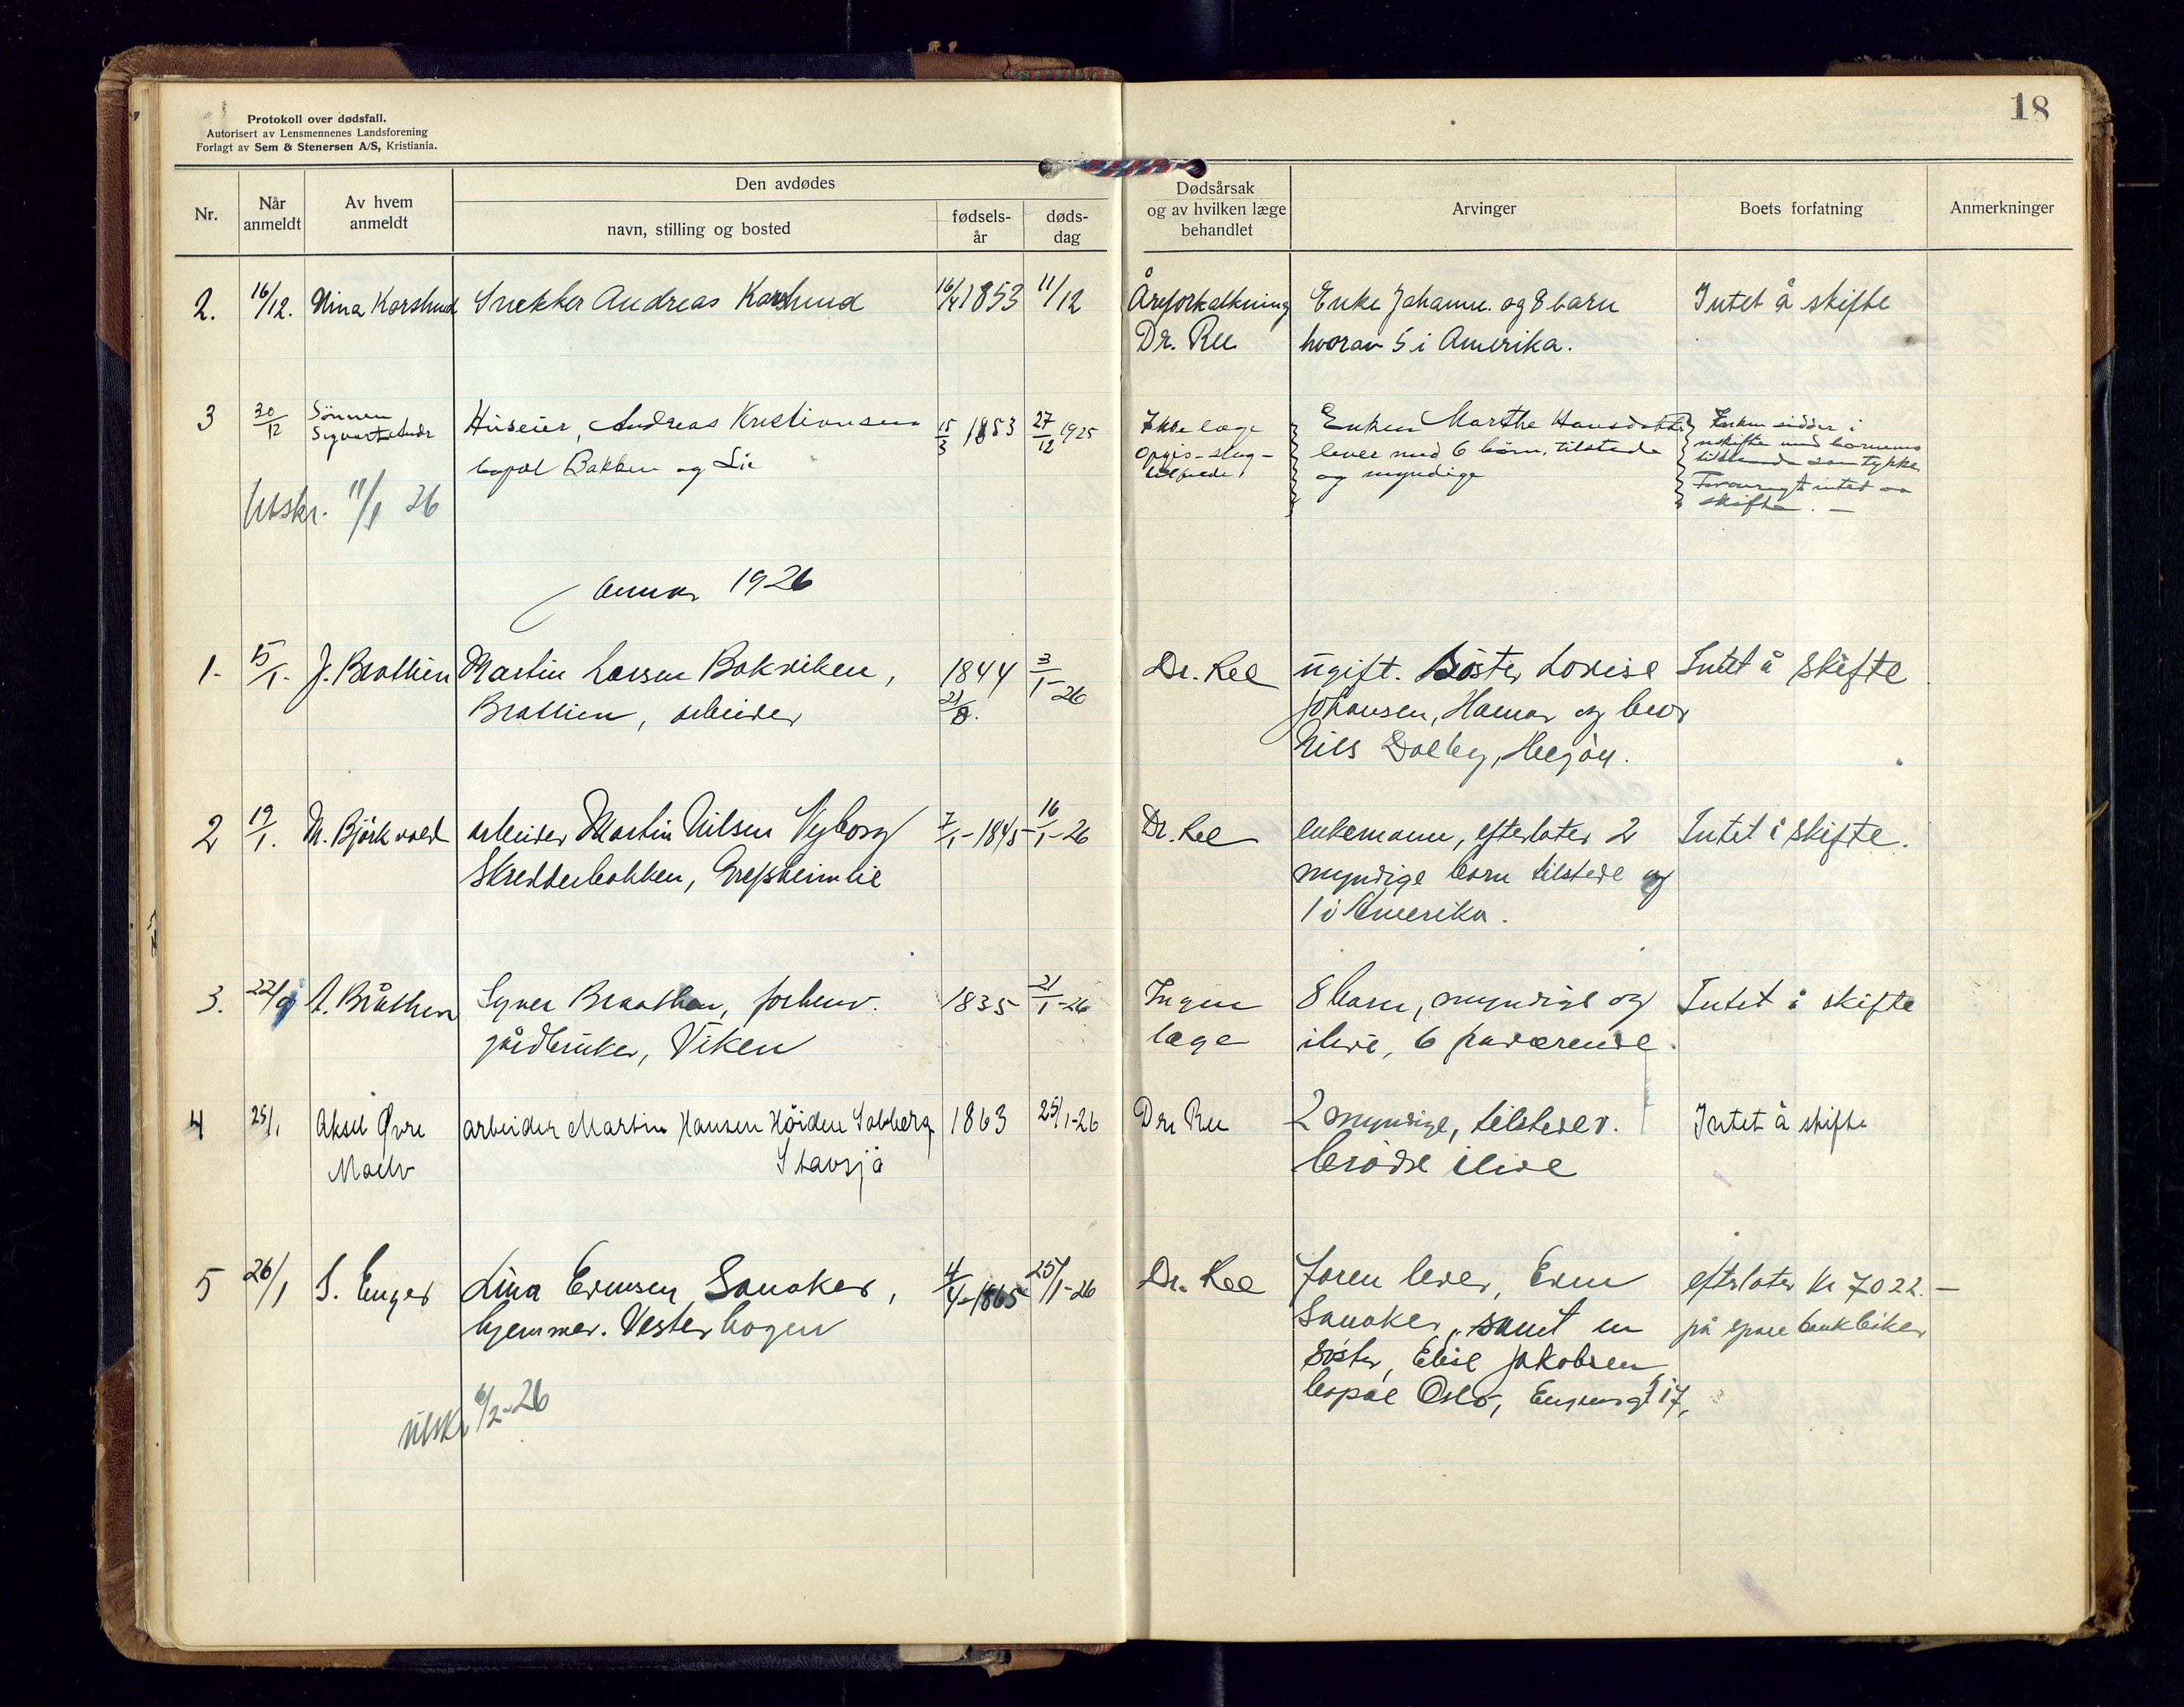 18
Protokoll over dødsfall.
Autorisert av Lensmennenes Landsforening
Forlagt av Sem & Stenersen A/S, Kristiania.
Nr.
Når anmeldt
Av hvem anmeldt
Den avdødes
navn, stilling og bosted
fødsels-år
døds-dag
Dødsårsak og av hvilken læge behandlet
Arvinger
Boets forfatning
Anmerkninger
2. 16/12. Nina Karslund Snekker Andreas Karslund 16/4 1853 11/12 Åreforkalkning Enke Johanne. og 8 barn Intet å skifte
Dr. Ree hvorav 5 i Amerika.
3 30/12 Sønnen Huseier, Andreas Kristiansen 15/3 1853 27/12 1925 Ikke læge Enken Marthe Hansdatter Enken sidder i
Sigvart Andr bopæl Bakken og Lie Opgis slag- lever med 6 børn, tilstede uskifte med børnenes
tilfælde og myndige samtykke
Forøvrigt intet aa
skifte. —
Utskr. 11/1 26
Januar 1926
1. 15/1. J. Brattlien Martin Larsen Bakviken, 1844 3/1-26 Dr. Ree ugift. Søster Lovise Intet å skifte
Brattlien, arbeider 21/8. Johansen, Hamar og bror
Nils Dalby, Helgøy.
2 19/1. M. Björkvold arbeider Martin Nilsen Nyborg 7/1-1845 16/1-26 Dr. Ree enkemann, efterlater 2 Intet å skifte.
Skredderbakken, Grefsheimlie myndige barn tilstede og
1 i Amerika.
3. 22/1 A. Bråthen Syver Braathen, forhenv. 1835 21/1-26 Ingen 8 barn, myndige og Intet å skifte
gårdbruker, Viken læge ilive, 6 nærværende.
4 25/1 Aksel Øvre arbeider Martin Hansen Höiden Solberg 1863 25/1-26 Dr. Ree 2 myndige, tilstedev. Intet å skifte
Maelv Stavsjö brödre ilive
5 26/1 S. Enger Lina Evensen Sanaker, 4/4-1865 25/1-26 Dr. Ree Faren lever, Even efterlater kr 7022.—
hjemmev. Vesterhagen Sanaker, samt en på sparebankbøker
Søster, Elise Jakobsen
bopæl Oslo, 17,
utskr. 6/2-26